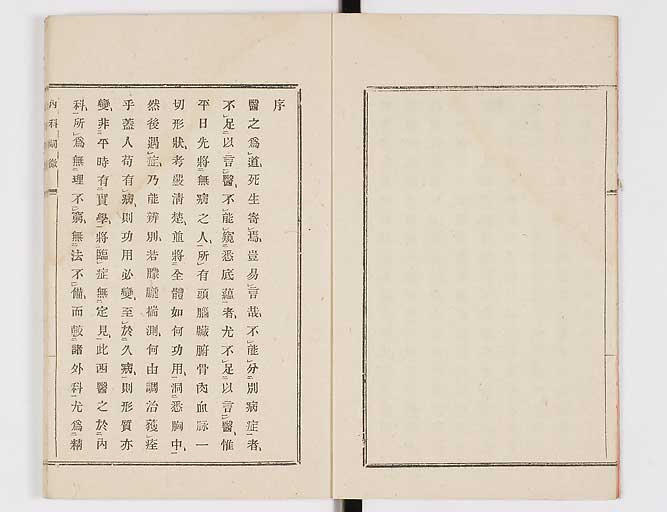 序
醫之爲道死生寄焉豈易言哉不能分別病症者
不足以言醫不能窺悉底蘊者尤不足以言醫惟
平日先將無病之人所有頭腦臟腑骨肉血脉一
切形狀考嚴淸楚並將全體如何功用洞悉胸中
然後遇症乃能辨別若朦朧揣測何由調治獲痊
乎蓋人苟有病則功用必變至於久病則形質亦
變非平時有實學將臨症無定見此西醫之於內
科所爲無理不窮無法不備而較諸外科尤爲精
內科闡微